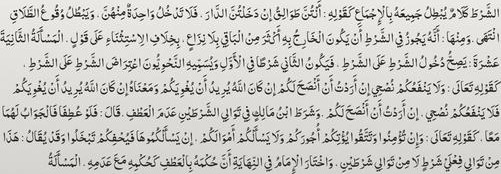 الشَّرْطَ كَلَامٌ يُبْطِلُ جَمِيعَهُ بِالْإِجْمَاعِ كَقَوْلِهِ : أَنْتُنَّ طَوَالِقُ إنْ دَخَلْتُنَّ الدَّارَ . فَلَا تَدْخُلُ وَاحِدَةٌ مِنْهُنَّ . وَيَبْطُلُ وُقُوعُ الطَّلَاقِ
انْتَهَى . وَمِنْهَا : أَنَّهُ يَجُوزُ فِي الشَّرْطِ أَنْ يَكُونَ الْخَارِجُ بِهِ أَكْثَرَ مِنْ الْبَاقِي بِلَا نِزَاعٍ . بِخِلَافِ الِاسْتِثْنَاءِ عَلَى قَوْلٍ . الْمَسْأَلَةُ الثَّانِيَةَ
عَشْرَةَ : يَصِحُّ دُخُولُ الشَّرْطِ عَلَى الشَّرْطِ . فَيَكُونُ الثَّانِي شَرْطًا فِي الْأَوَّلِ وَيُسَمِّيهِ النَّحْوِيُّونَ اعْتِرَاضَ الشَّرْطِ عَلَى الشَّرْطِ .
كَقَوْلِهِ تَعَالَى : وَلَا يَنْفَعُكُمْ نُصْحِي إنْ أَرَدْتُ أَنْ أَنْصَحَ لَكُمْ إنْ كَانَ اللَّهُ يُرِيدُ أَنْ يُغْوِيَكُمْ وَمَعْنَاهُ إنْ كَانَ اللَّهُ يُرِيدُ أَنْ يُغْوِيَكُمْ
فَلَا يَنْفَعُكُمْ نُصْحِي . إنْ أَرَدْتُ أَنْ أَنْصَحَ لَكُمْ . وَشَرَطَ ابْنُ مَالِكٍ فِي تَوَالِي الشَّرْطَيْنِ عَدَمَ الْعَطْفِ . قَالَ : فَلَوْ عُطِفَا فَالْجَوَابُ لَهُمَا
مَعًا . كَقَوْلِهِ تَعَالَى : وَإِنْ تُؤْمِنُوا وَتَتَّقُوا يُؤْتِكُمْ أُجُورَكُمْ وَلَا يَسْأَلْكُمْ أَمْوَالَكُمْ . إنْ يَسْأَلْكُمُوهَا فَيُحْفِكُمْ تَبْخَلُوا وَقَدْ يُقَالُ : هَذَا
مِنْ تَوَالِي فِعْلَيْ شَرْطٍ لَا مِنْ تَوَالِي شَرْطَيْنِ . وَاخْتَارَ الْإِمَامُ فِي النِّهَايَةِ أَنَّ حُكْمَهُ بِالْعَطْفِ كَحُكْمِهِ مَعَ عَدَمِهِ . الْمَسْأَلَةُ